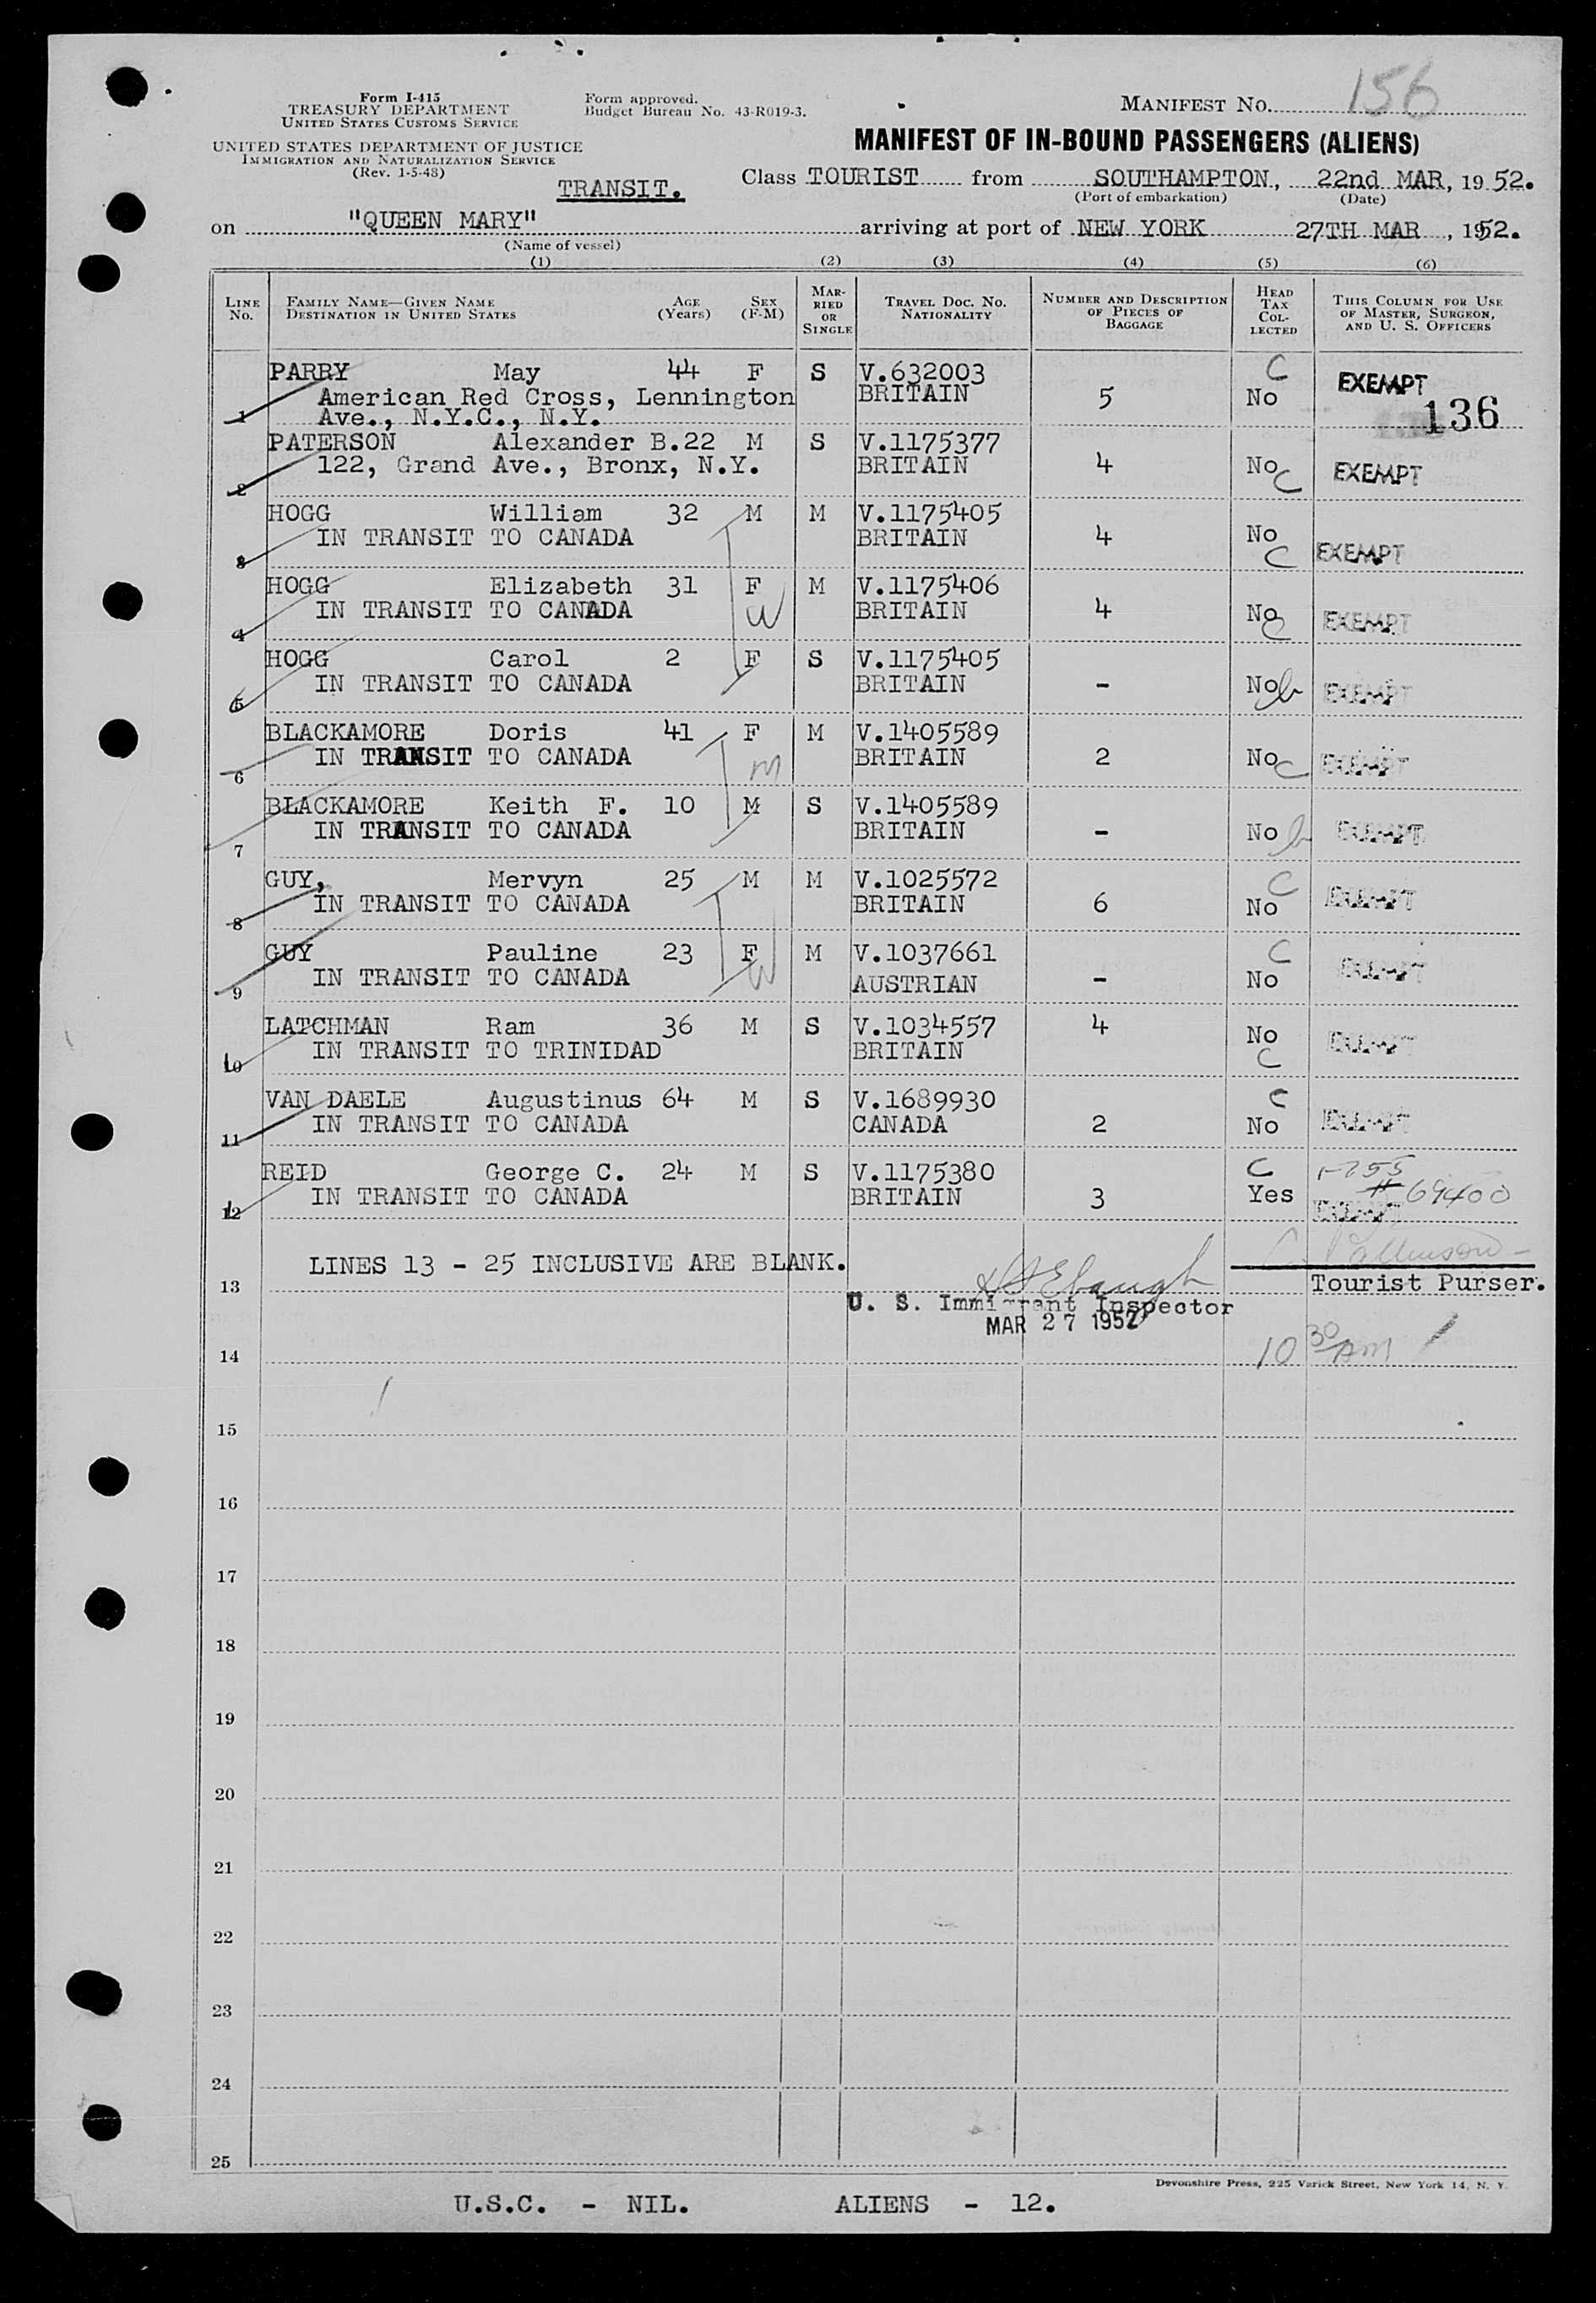 Form I-415
TREASURY DEPARTMENT
UNITED STATES CUSTOMS SERVICE
UNITED STATES DEPARTMENT OF JUSTICE
IMMIGRATION AND NATURALIZATION SERVICE
(Rev. 1-5-48)
Form approved.
Budget Bureau No. 43-R019-3.
MANIFEST NO. 156
MANIFEST OF IN-BOUND PASSENGERS (ALIENS)
TRANSIT.
Class TOURIST from SOUTHAMPTON, 22nd MAR, 19 52.
(Port of embarkation) (Date)
on "QUEEN MARY" arriving at port of NEW YORK 27TH MAR , 1952.
(Name of vessel)
(1) (2) (3) (4) (5) (6)
LINE No. FAMILY NAME—GIVEN NAME DESTINATION IN UNITED STATES AGE (Years) SEX (F-M) MARRIED OR SINGLE TRAVEL DOC. NO. NATIONALITY NUMBER AND DESCRIPTION OF PIECES OF BAGGAGE HEAD TAX COLLECTED THIS COLUMN FOR USE OF MASTER, SURGEON, AND U. S. OFFICERS
PARRY May 44 F S V.632003 C EXEMPT
American Red Cross, Lennington BRITAIN 5 No 136
1 Ave., N.Y.C., N.Y.
PATERSON Alexander B. 22 M S V.1175377
2 122, Grand Ave., Bronx, N.Y. BRITAIN 4 No C EXEMPT
HOGG William 32 M M V.1175405
3 IN TRANSIT TO CANADA BRITAIN 4 No C EXEMPT
HOGG Elizabeth 31 F M V.1175406
4 IN TRANSIT TO CANADA W BRITAIN 4 No C EXEMPT
HOGG Carol 2 F S V.1175405
5 IN TRANSIT TO CANADA BRITAIN - No EXEMPT
BLACKAMORE Doris 41 F M V.1405589
6 IN TRANSIT TO CANADA m BRITAIN 2 No C EXEMPT
BLACKAMORE Keith F. 10 M S V.1405589
7 IN TRANSIT TO CANADA BRITAIN - No EXEMPT
GUY, Mervyn 25 M M V.1025572 C
8 IN TRANSIT TO CANADA BRITAIN 6 No EXEMPT
GUY Pauline 23 F M V.1037661 C
9 IN TRANSIT TO CANADA W AUSTRIAN - No EXEMPT
LATCHMAN Ram 36 M S V.1034557 4 No
10 IN TRANSIT TO TRINIDAD BRITAIN C EXEMPT
VAN DAELE Augustinus 64 M S V.1689930 C
11 IN TRANSIT TO CANADA CANADA 2 No EXEMPT
REID George C. 24 M S V.1175380 C
12 IN TRANSIT TO CANADA BRITAIN 3 Yes 69400 EXEMPT
LINES 13 - 25 INCLUSIVE ARE BLANK.
13 Tourist Purser.
U. S. Immigrant Inspector
MAR 27 1952
14 10 30 AM
15
16
17
18
19
20
21
22
23
24
25
Devonshire Press, 225 Varick Street, New York 14, N. Y.
U.S.C. - NIL. ALIENS - 12.